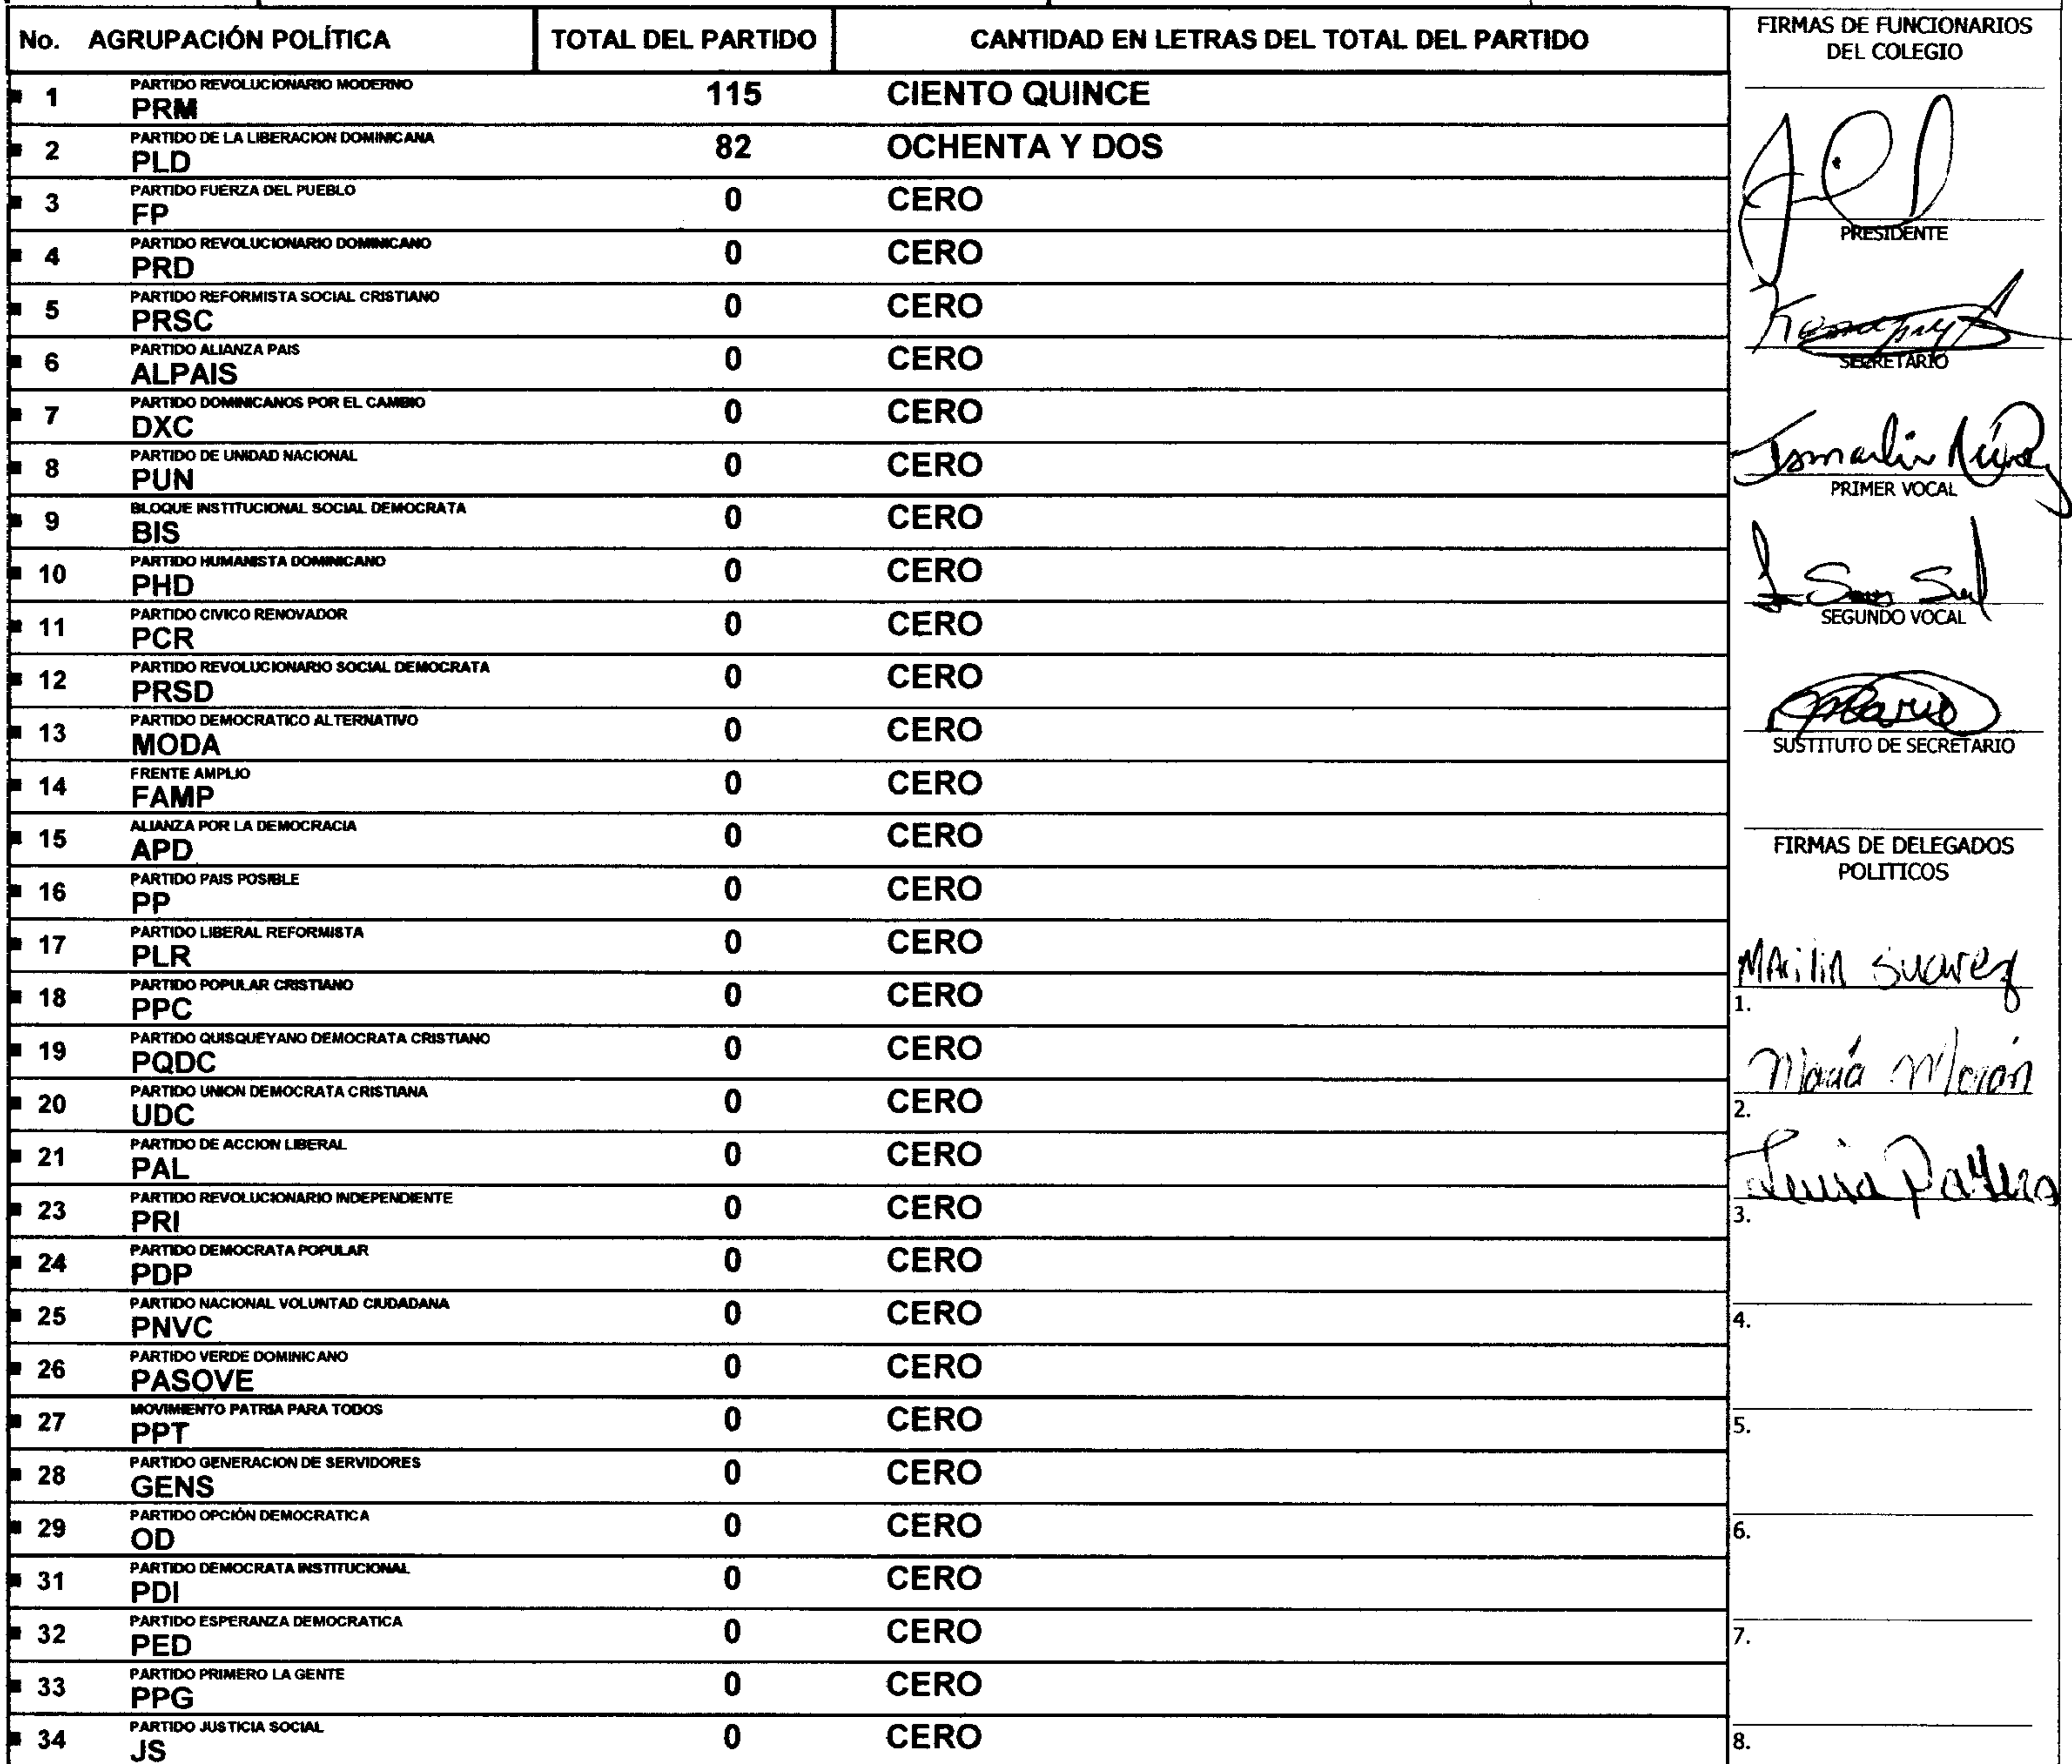 No. AGRUPACIÓN POLÍTICA TOTAL DEL PARTIDO CANTIDAD EN LETRAS DEL TOTAL DEL PARTIDO
1 PARTIDO REVOLUCIONARIO MODERNO
PRM 115 CIENTO QUINCE
2 PARTIDO DE LA LIBERACION DOMINICANA
PLD 82 OCHENTA Y DOS
3 PARTIDO FUERZA DEL PUEBLO
FP 0 CERO
4 PARTIDO REVOLUCIONARIO DOMINICANO
PRD 0 CERO
5 PARTIDO REFORMISTA SOCIAL CRISTIANO
PRSC 0 CERO
6 PARTIDO ALIANZA PAIS
ALPAIS 0 CERO
7 PARTIDO DOMINICANOS POR EL CAMBIO
DXC 0 CERO
8 PARTIDO DE UNIDAD NACIONAL
PUN 0 CERO
9 BLOQUE INSTITUCIONAL SOCIAL DEMOCRATA
BIS 0 CERO
10 PARTIDO HUMANISTA DOMINICANO
PHD 0 CERO
11 PARTIDO CIVICO RENOVADOR
PCR 0 CERO
12 PARTIDO REVOLUCIONARIO SOCIAL DEMOCRATA
PRSD 0 CERO
13 PARTIDO DEMOCRATICO ALTERNATIVO
MODA 0 CERO
14 FRENTE AMPLIO
FAMP 0 CERO
15 ALIANZA POR LA DEMOCRACIA
APD 0 CERO
16 PARTIDO PAIS POSIBLE
PP 0 CERO
17 PARTIDO LIBERAL REFORMISTA
PLR 0 CERO
18 PARTIDO POPULAR CRISTIANO
PPC 0 CERO
19 PARTIDO QUISQUEYANO DEMOCRATA CRISTIANO
PQDC 0 CERO
20 PARTIDO UNION DEMOCRATA CRISTIANA
UDC 0 CERO
21 PARTIDO DE ACCION LIBERAL
PAL 0 CERO
23 PARTIDO REVOLUCIONARIO INDEPENDIENTE
PRI 0 CERO
24 PARTIDO DEMOCRATA POPULAR
PDP 0 CERO
25 PARTIDO NACIONAL VOLUNTAD CIUDADANA
PNVC 0 CERO
26 PARTIDO VERDE DOMINICANO
PASOVE 0 CERO
27 MOVIMIENTO PATRIA PARA TODOS
PPT 0 CERO
28 PARTIDO GENERACION DE SERVIDORES
GENS 0 CERO
29 PARTIDO OPCIÓN DEMOCRATICA
OD 0 CERO
31 PARTIDO DEMOCRATA INSTITUCIONAL
PDI 0 CERO
32 PARTIDO ESPERANZA DEMOCRATICA
PED 0 CERO
33 PARTIDO PRIMERO LA GENTE
PPG 0 CERO
34 PARTIDO JUSTICIA SOCIAL
JS 0 CERO
FIRMAS DE FUNCIONARIOS
DEL COLEGIO
PRESIDENTE
SECRETARIO
Ismarlin Núñez
PRIMER VOCAL
SEGUNDO VOCAL
SUSTITUTO DE SECRETARIO
FIRMAS DE DELEGADOS
POLITICOS
Suarez
1.
María Morán
2.
3.
4.
5.
6.
7.
8.